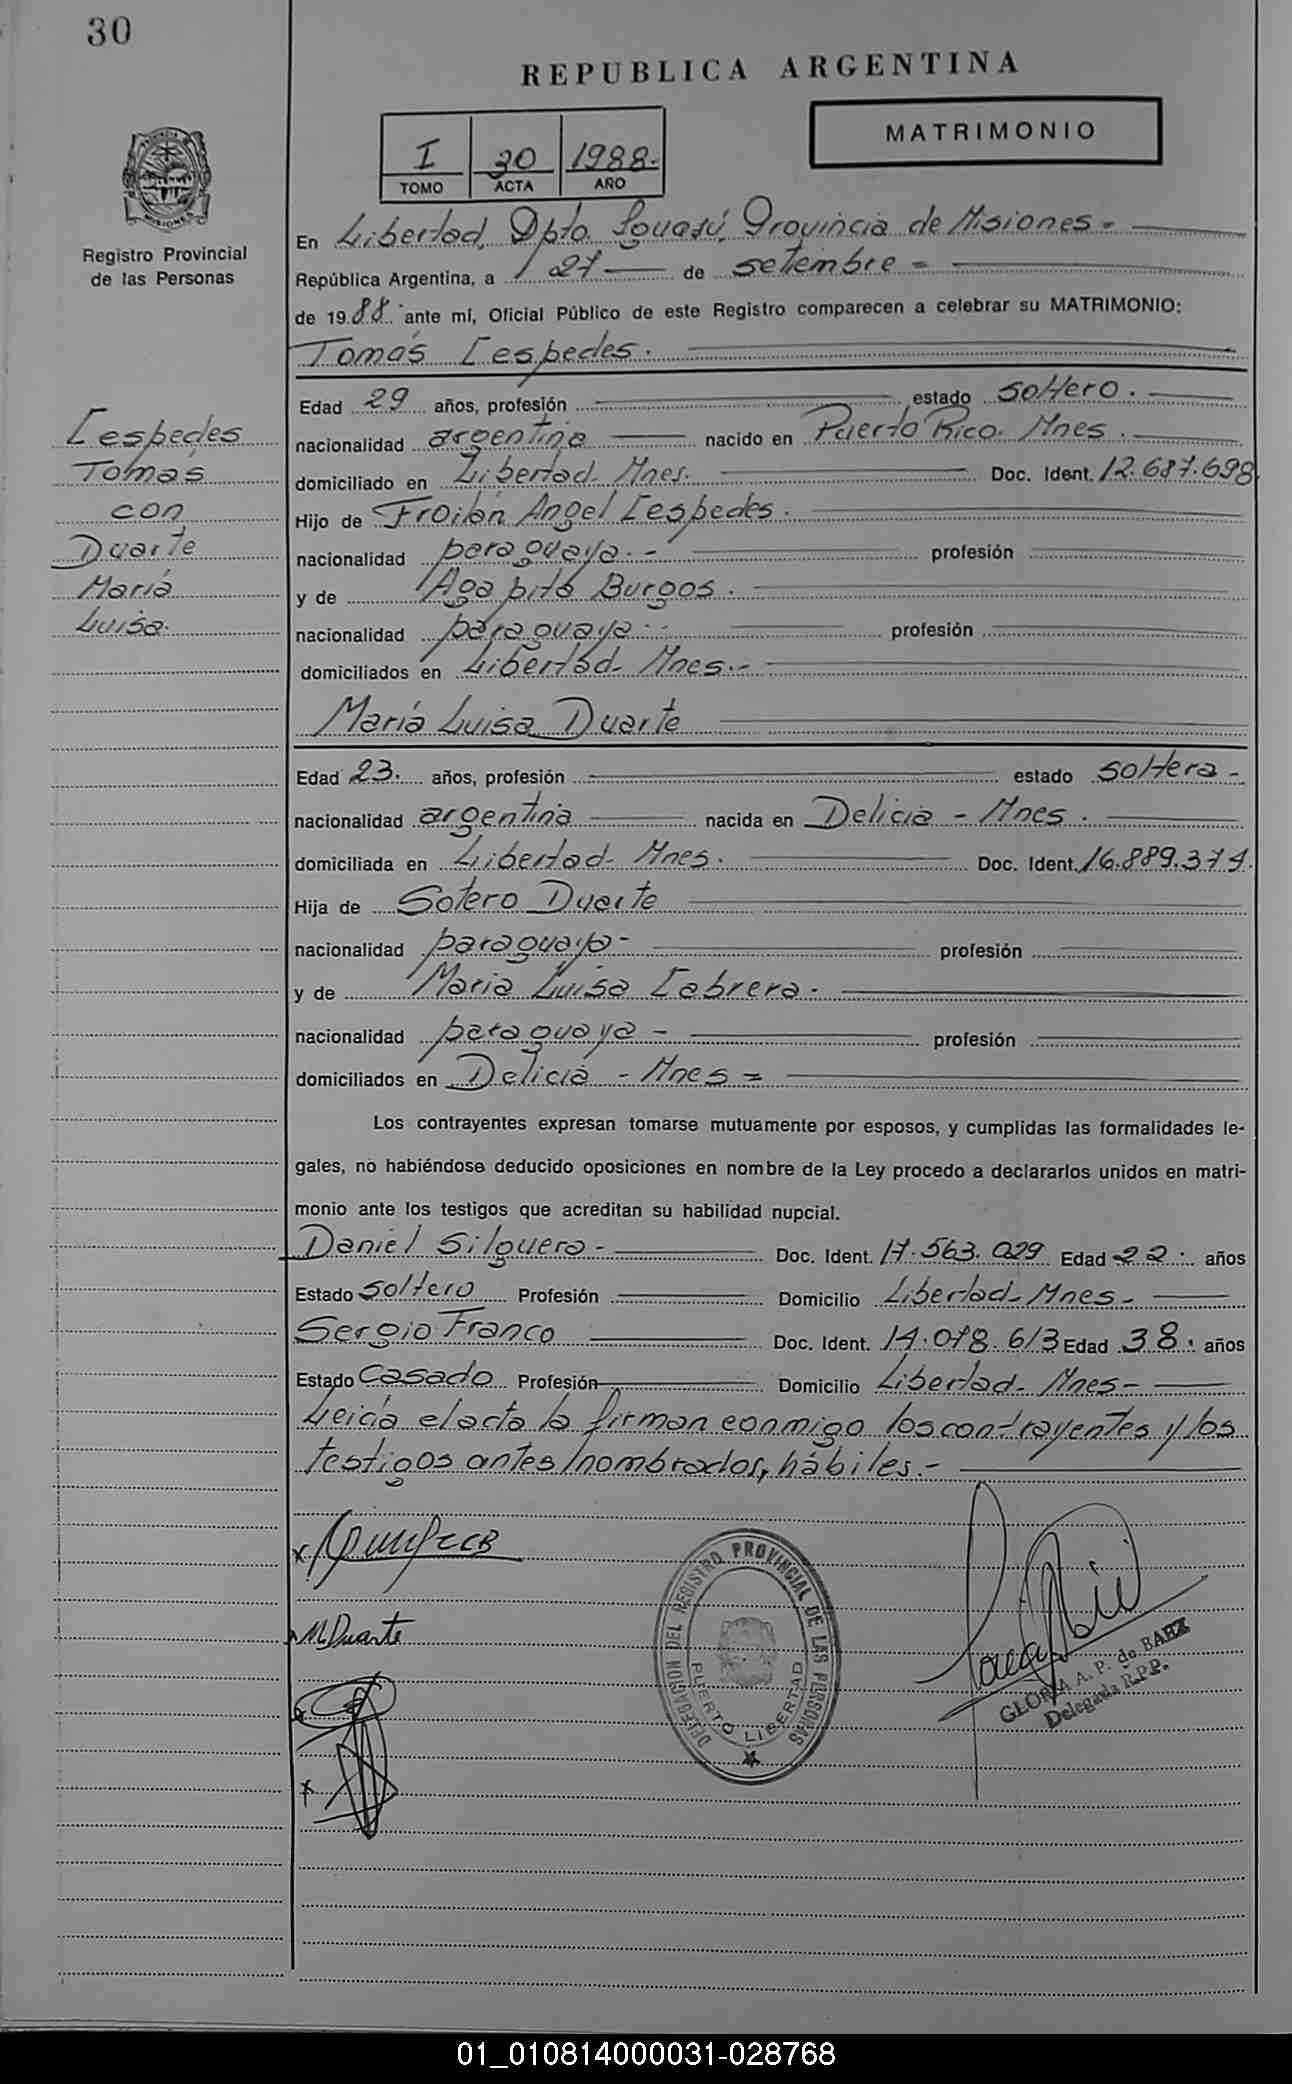 30
REPUBLICA ARGENTINA
MATRIMONIO
I 30 1988.-
TOMO ACTA AÑO
PROVINCIA
MISIONES
Registro Provincial
de las Personas
En Libertad, Dpto. Iguazú, Provincia de Misiones =
República Argentina, a 27 de setiembre =
de 1988. ante mí, Oficial Público de este Registro comparecen a celebrar su MATRIMONIO:
Tomás Cespedes.
Edad 29 años, profesión estado soltero.
nacionalidad argentina nacido en Puerto Rico. Mnes.
domiciliado en Libertad- Mnes. Doc. Ident. 12.687.698
Hijo de Froilán Angel Cespedes.
nacionalidad paraguaya.- profesión
y de Agapita Burgos.
nacionalidad paraguaya.- profesión
domiciliados en Libertad- Mnes.-
Cespedes
Tomás
con
Duarte
María
Luisa.
María Luisa Duarte
Edad 23. años, profesión estado soltera-
nacionalidad argentina nacida en Delicia - Mnes.
domiciliada en Libertad- Mnes. Doc. Ident. 16.889.374.
Hija de Sotero Duarte
nacionalidad paraguaya- profesión
y de Maria Luisa Cabrera.
nacionalidad paraguaya - profesión
domiciliados en Delicia - Mnes =
Los contrayentes expresan tomarse mutuamente por esposos, y cumplidas las formalidades le-
gales, no habiéndose deducido oposiciones en nombre de la Ley procedo a declararlos unidos en matri-
monio ante los testigos que acreditan su habilidad nupcial.
Daniel Silguero- Doc. Ident. 17.563.029 Edad 22. años
Estado soltero Profesión Domicilio Libertad- Mnes-
Sergio Franco Doc. Ident. 14.078.613 Edad 38. años
Estado casado Profesión Domicilio Libertad- Mnes-
Leida el acta la firman conmigo los contrayentes y los
testigos antes nombrados, hábiles.-
M Duarte
DELEGACION DEL REGISTRO PROVINCIAL DE LAS PERSONAS
PUERTO LIBERTAD
GLORIA A. P. de BAEZ
Delegada R.P.P.
01_010814000031-028768